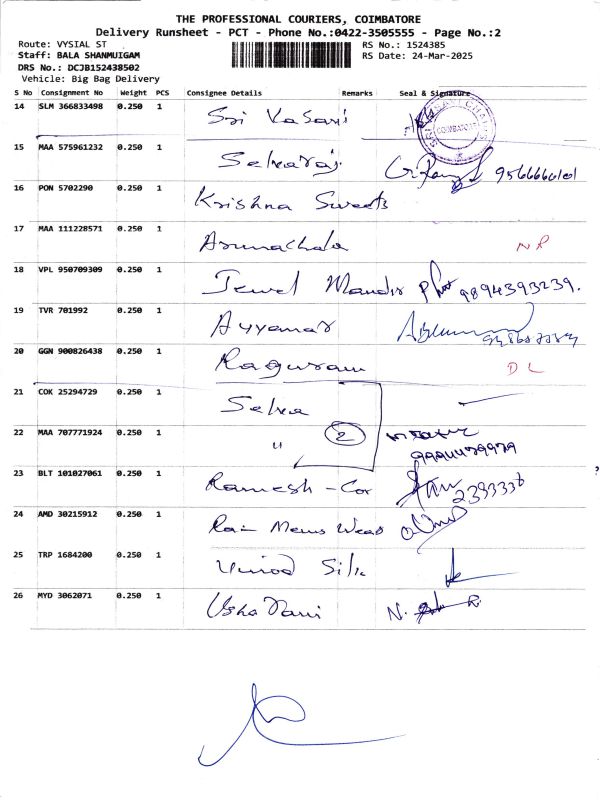 THE PROFESSIONAL COURIERS, COIMBATORE
Delivery Runsheet - PCT - Phone No.:0422-3505555 - Page No.:2
Route: VYSIAL ST RS No.: 1524385
Staff: BALA SHANMUIGAM RS Date: 24-Mar-2025
DRS No.: DCJB152438502
Vehicle: Big Bag Delivery
S No Consignment No Weight PCS Consignee Details Remarks Seal & Signature
14 SLM 366833498 0.250 1 Sri Vasavi COIMBATORE
15 MAA 575961232 0.250 1 Selvaraj 9566666101
16 PON 5702290 0.250 1 Krishna Sweets
17 MAA 111228571 0.250 1 Arunachala NR
18 VPL 950709309 0.250 1 Jewel Mandir 9894393239.
19 TVR 701992 0.250 1 Ayyamar
20 GGN 900826438 0.250 1 Raguram DL
21 COK 25294729 0.250 1 Selva
22 MAA 707771924 0.250 1 " 2
23 BLT 101027061 0.250 1 Ramesh - Car 2393336
24 AMD 30215912 0.250 1 Rai Mens Wear
25 TRP 1684200 0.250 1 Vinod Silk
26 MYD 3062071 0.250 1 Usha Rani N.